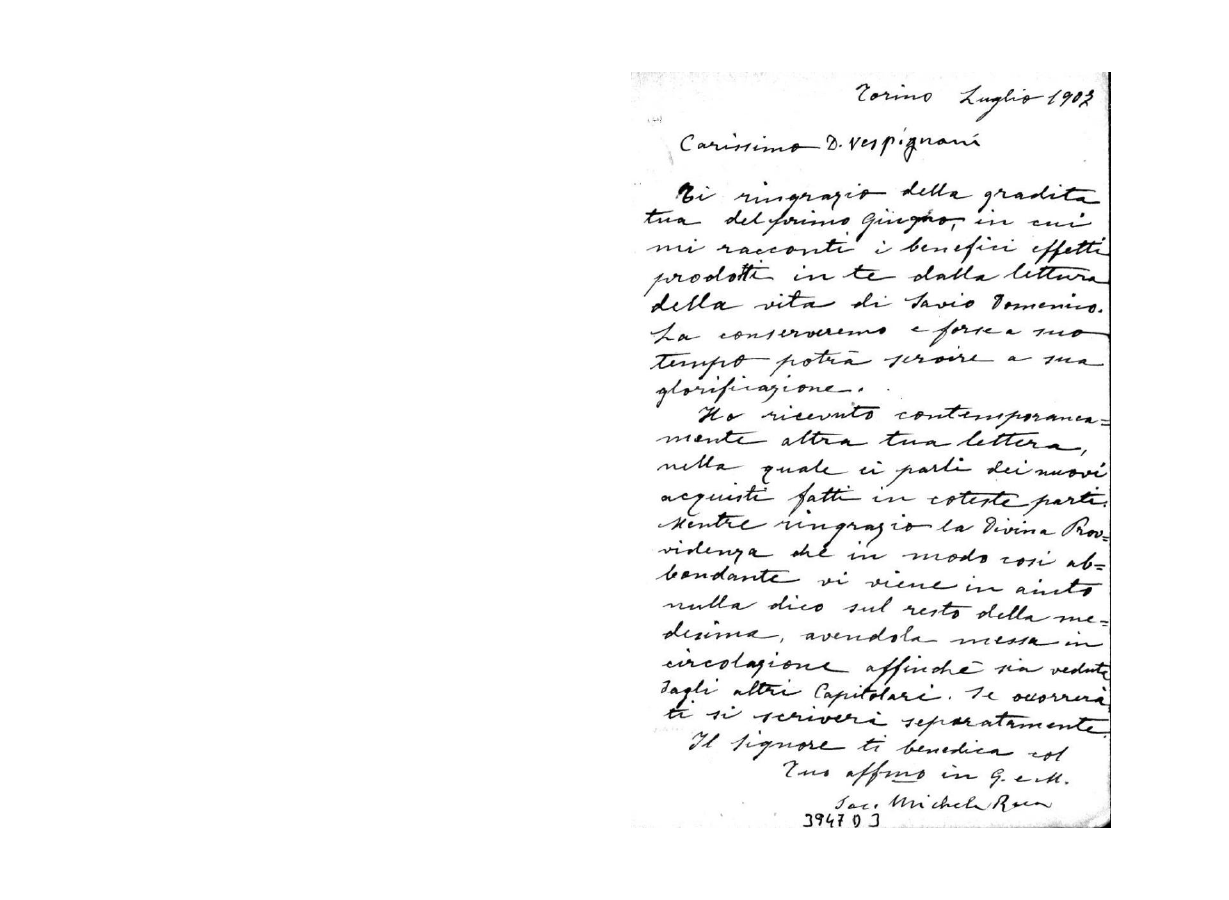 Torino Luglio 1902
Carissimo D. Vespignani
Ti ringrazio della gradita
tua del primo Giugno, in cui
mi racconti i benefici effetti
prodotti in te dalla lettura
della vita di Savio Domenico.
La conserveremo e forse a suo
tempo potrà servire a sua
glorificazione.
Ho ricevuto contemporanea=
mente altra tua lettera,
nella quale ci parli dei nuovi
acquisti fatti in coteste parti.
Mentre ringrazio la Divina Prov=
videnza che in modo così ab=
bondante vi viene in aiuto
nulla dico sul resto della me=
desima, avendola messa in
circolazione affinchè sia veduta
dagli altri Capitolari. Se occorrerà
ti si scriverà separatamente.
Il Signore ti benedica col
Tuo affmo in G. e M.
Sac. Michele Rua
3947 D 3